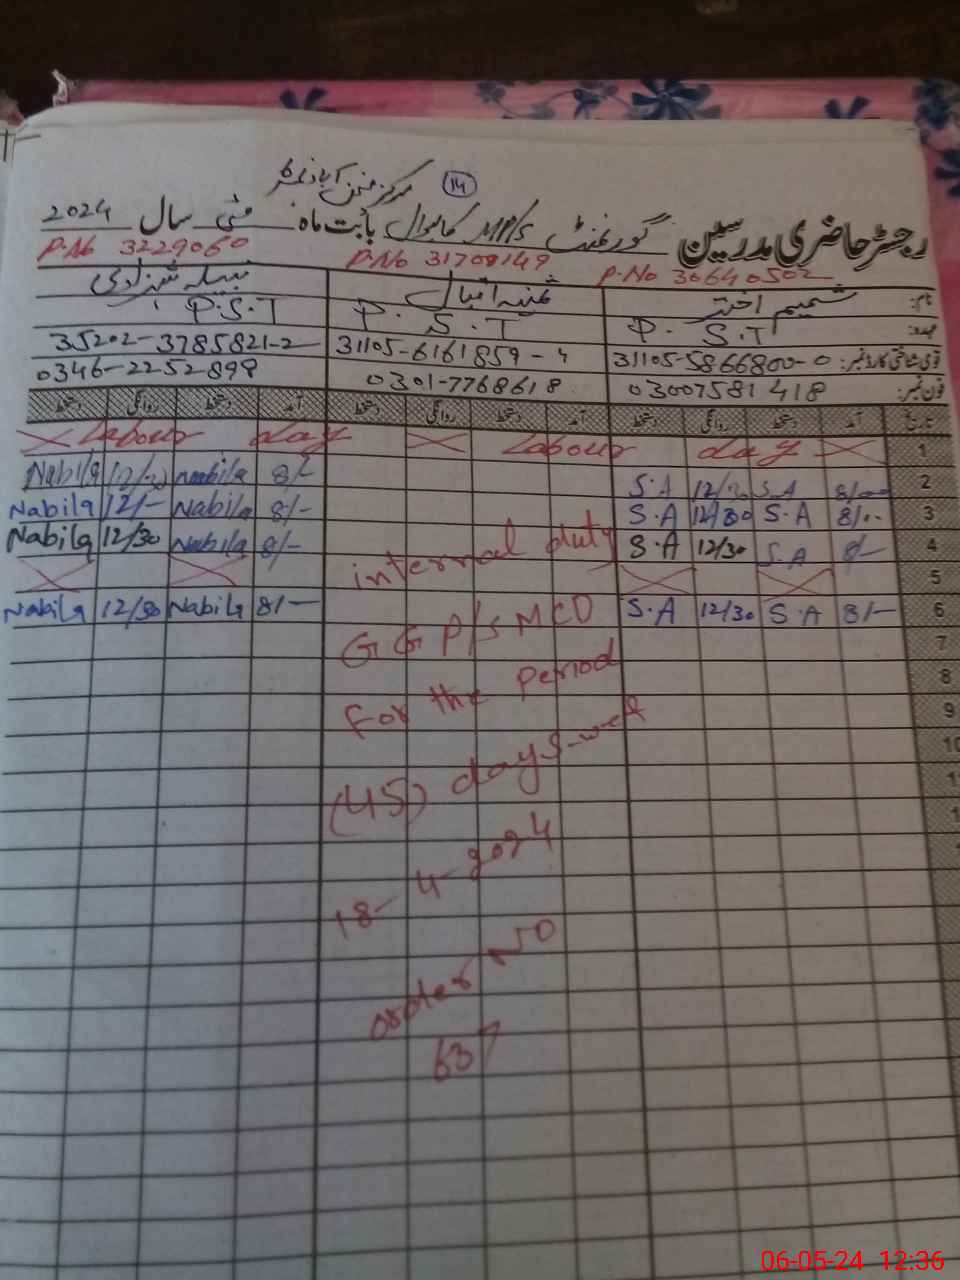 مرکز
14
رجسٹر حاضری مدرسین گورنمنٹ بابت ماہ مئی سال 2024
P.No 30640502 P.No 31708149 P.No 3229060
نام: شمیم اختر اقبال شہزادی
عہدہ: P.S.T P.S.T P.S.T
قومی شناختی کارڈ نمبر: 31105-5866800-0 31105-6161859-4 35202-3785821-2
فون نمبر: 03007581418 0301-7768618 0346-2252898
تاریخ آمد دستخط روانگی دستخط آمد دستخط روانگی دستخط آمد دستخط روانگی دستخط
1 Labour day Labour day
2 8/00 S.A S.A 8/- Nabila Nabila
3 8/.. S.A 12/30 S.A 8/- Nabila 12/- Nabila
4 8/- S.A 12/30 S.A 8/- Nabila 12/30 Nabila
5
6 8/- S.A 12/30 S.A 8/- Nabila 12/30 Nabila
7
8
9
10
internal duty
GGP/S MCD
for the Period
(45) days w-e-f
18-4-2024
order NO
637
06-05-24 12:36